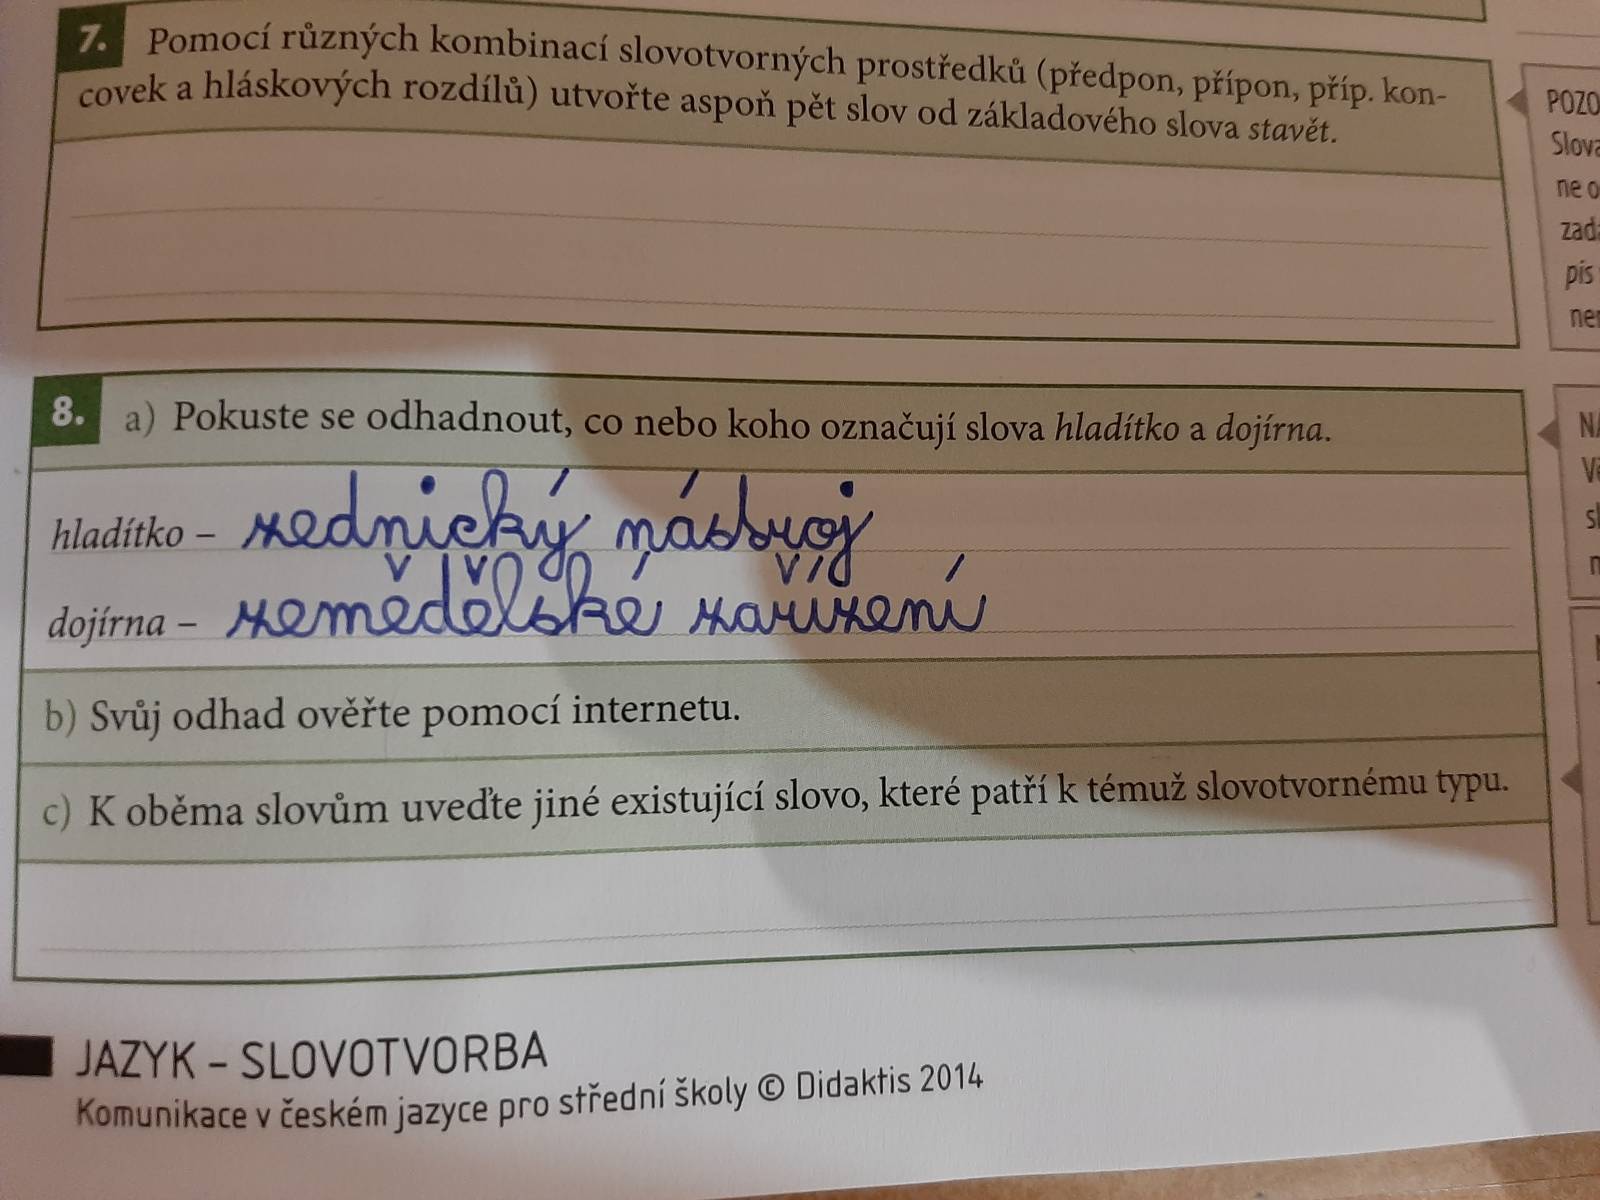 7. Pomocí různých kombinací slovotvorných prostředků (předpon, přípon, příp. kon-
covek a hláskových rozdílů) utvořte aspoň pět slov od základového slova stavět.
8. a) Pokuste se odhadnout, co nebo koho označují slova hladítko a dojírna.
hladítko – zednický nástroj
dojírna – zemědělské zařízení
b) Svůj odhad ověřte pomocí internetu.
c) K oběma slovům uveďte jiné existující slovo, které patří k témuž slovotvornému typu.
JAZYK – SLOVOTVORBA
Komunikace v českém jazyce pro střední školy © Didaktis 2014
POZO
Slova
ne o
zad
pís
ne